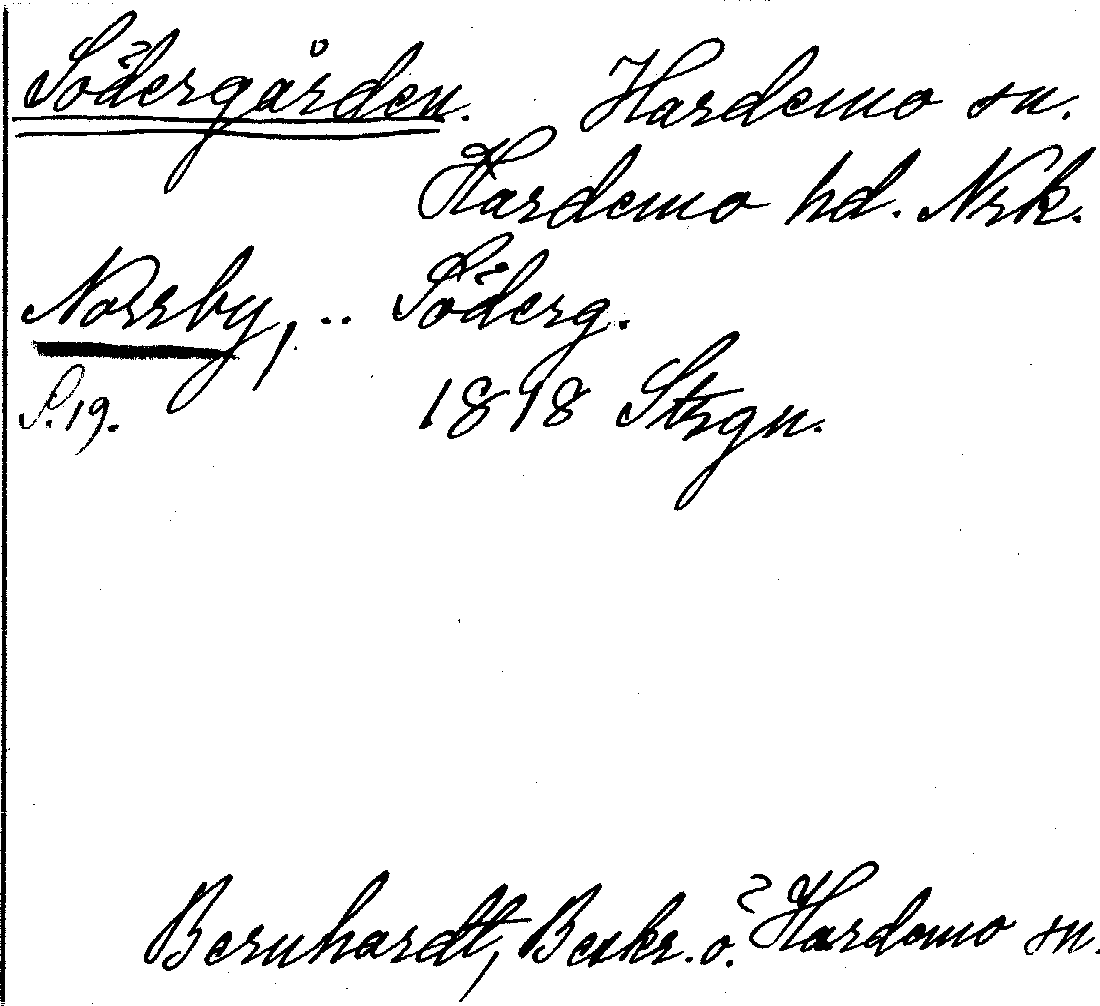 Södergården. Hardemo sn.
Hardemo hd. Nrk.
Norrby, .. Söderg.
S. 19. 1898 Strgn.
Bernhardt, Beskr. ö. Hardemo sn.